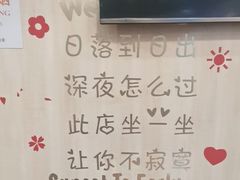 We
日落到日出
深夜怎么过
此店坐一坐
让你不寂寞
Sunset To Early